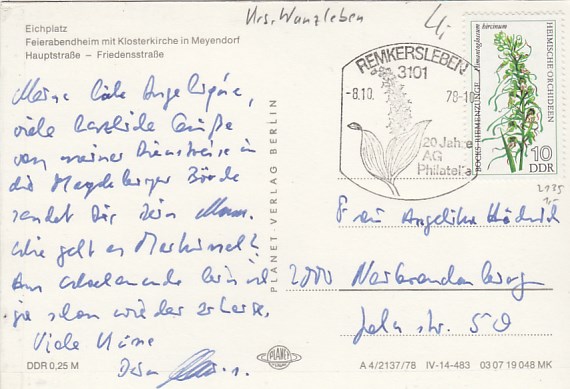 Krs. Wanzleben
4,-
Eichplatz
Feierabendheim mit Klosterkirche in Meyendorf
Hauptstraße – Friedensstraße
Meine liebe
viele herzliche Grüße
von meiner Dienstreise in
die Magdeburger Börde
sendet Dir Dein
Wie geht es
Am Wochenende bin ich
ja schon wieder zu Hause.
Viele Küsse
Dein
PLANET-VERLAG BERLIN
REMKERSLEBEN
3101
-8.10.
78-10
20 Jahre
AG
Philatelie
Himantoglossum hircinum
BOCKS-RIEMENZUNGE
HEIMISCHE ORCHIDEEN
10
DDR
2135
1,-
Frau Angelika
2000 Neubrandenburg
Jahnstr. 5
DDR 0,25 M
PLANET
A 4/2137/78 IV-14-483 03 07 19 048 MK